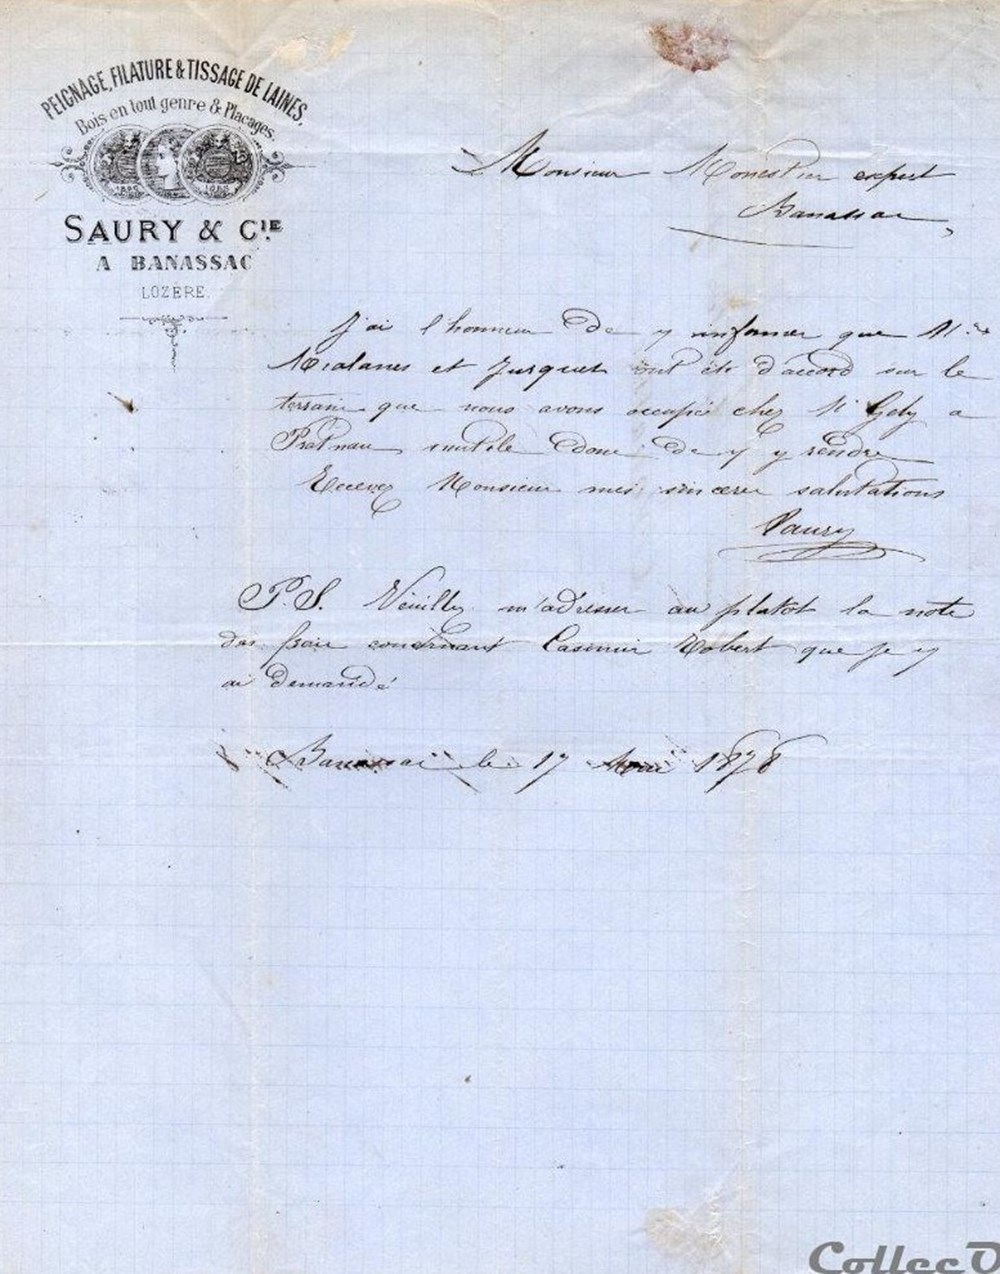 PEIGNAGE, FILATURE & TISSAGE DE LAINES,
Bois en tout genre & Placages
SAURY & CIE
A BANASSAC
LOZÈRE.
Monsieur Monestier expert
Banassac
J'ai l'honneur de v informer que M.rs
et Jurquet ont été d'accord sur le
terrain que nous avons occupé chez Mr Gely a
inutile donc de v y rendre
Recevez Monsieur mes sincères salutations
Saury
P.S. Veuillez m'adresser au plutot la note
des frais concernant Casimir Robert que je v
ai demandé
Banassac le 17 Mai 1878
CollecO